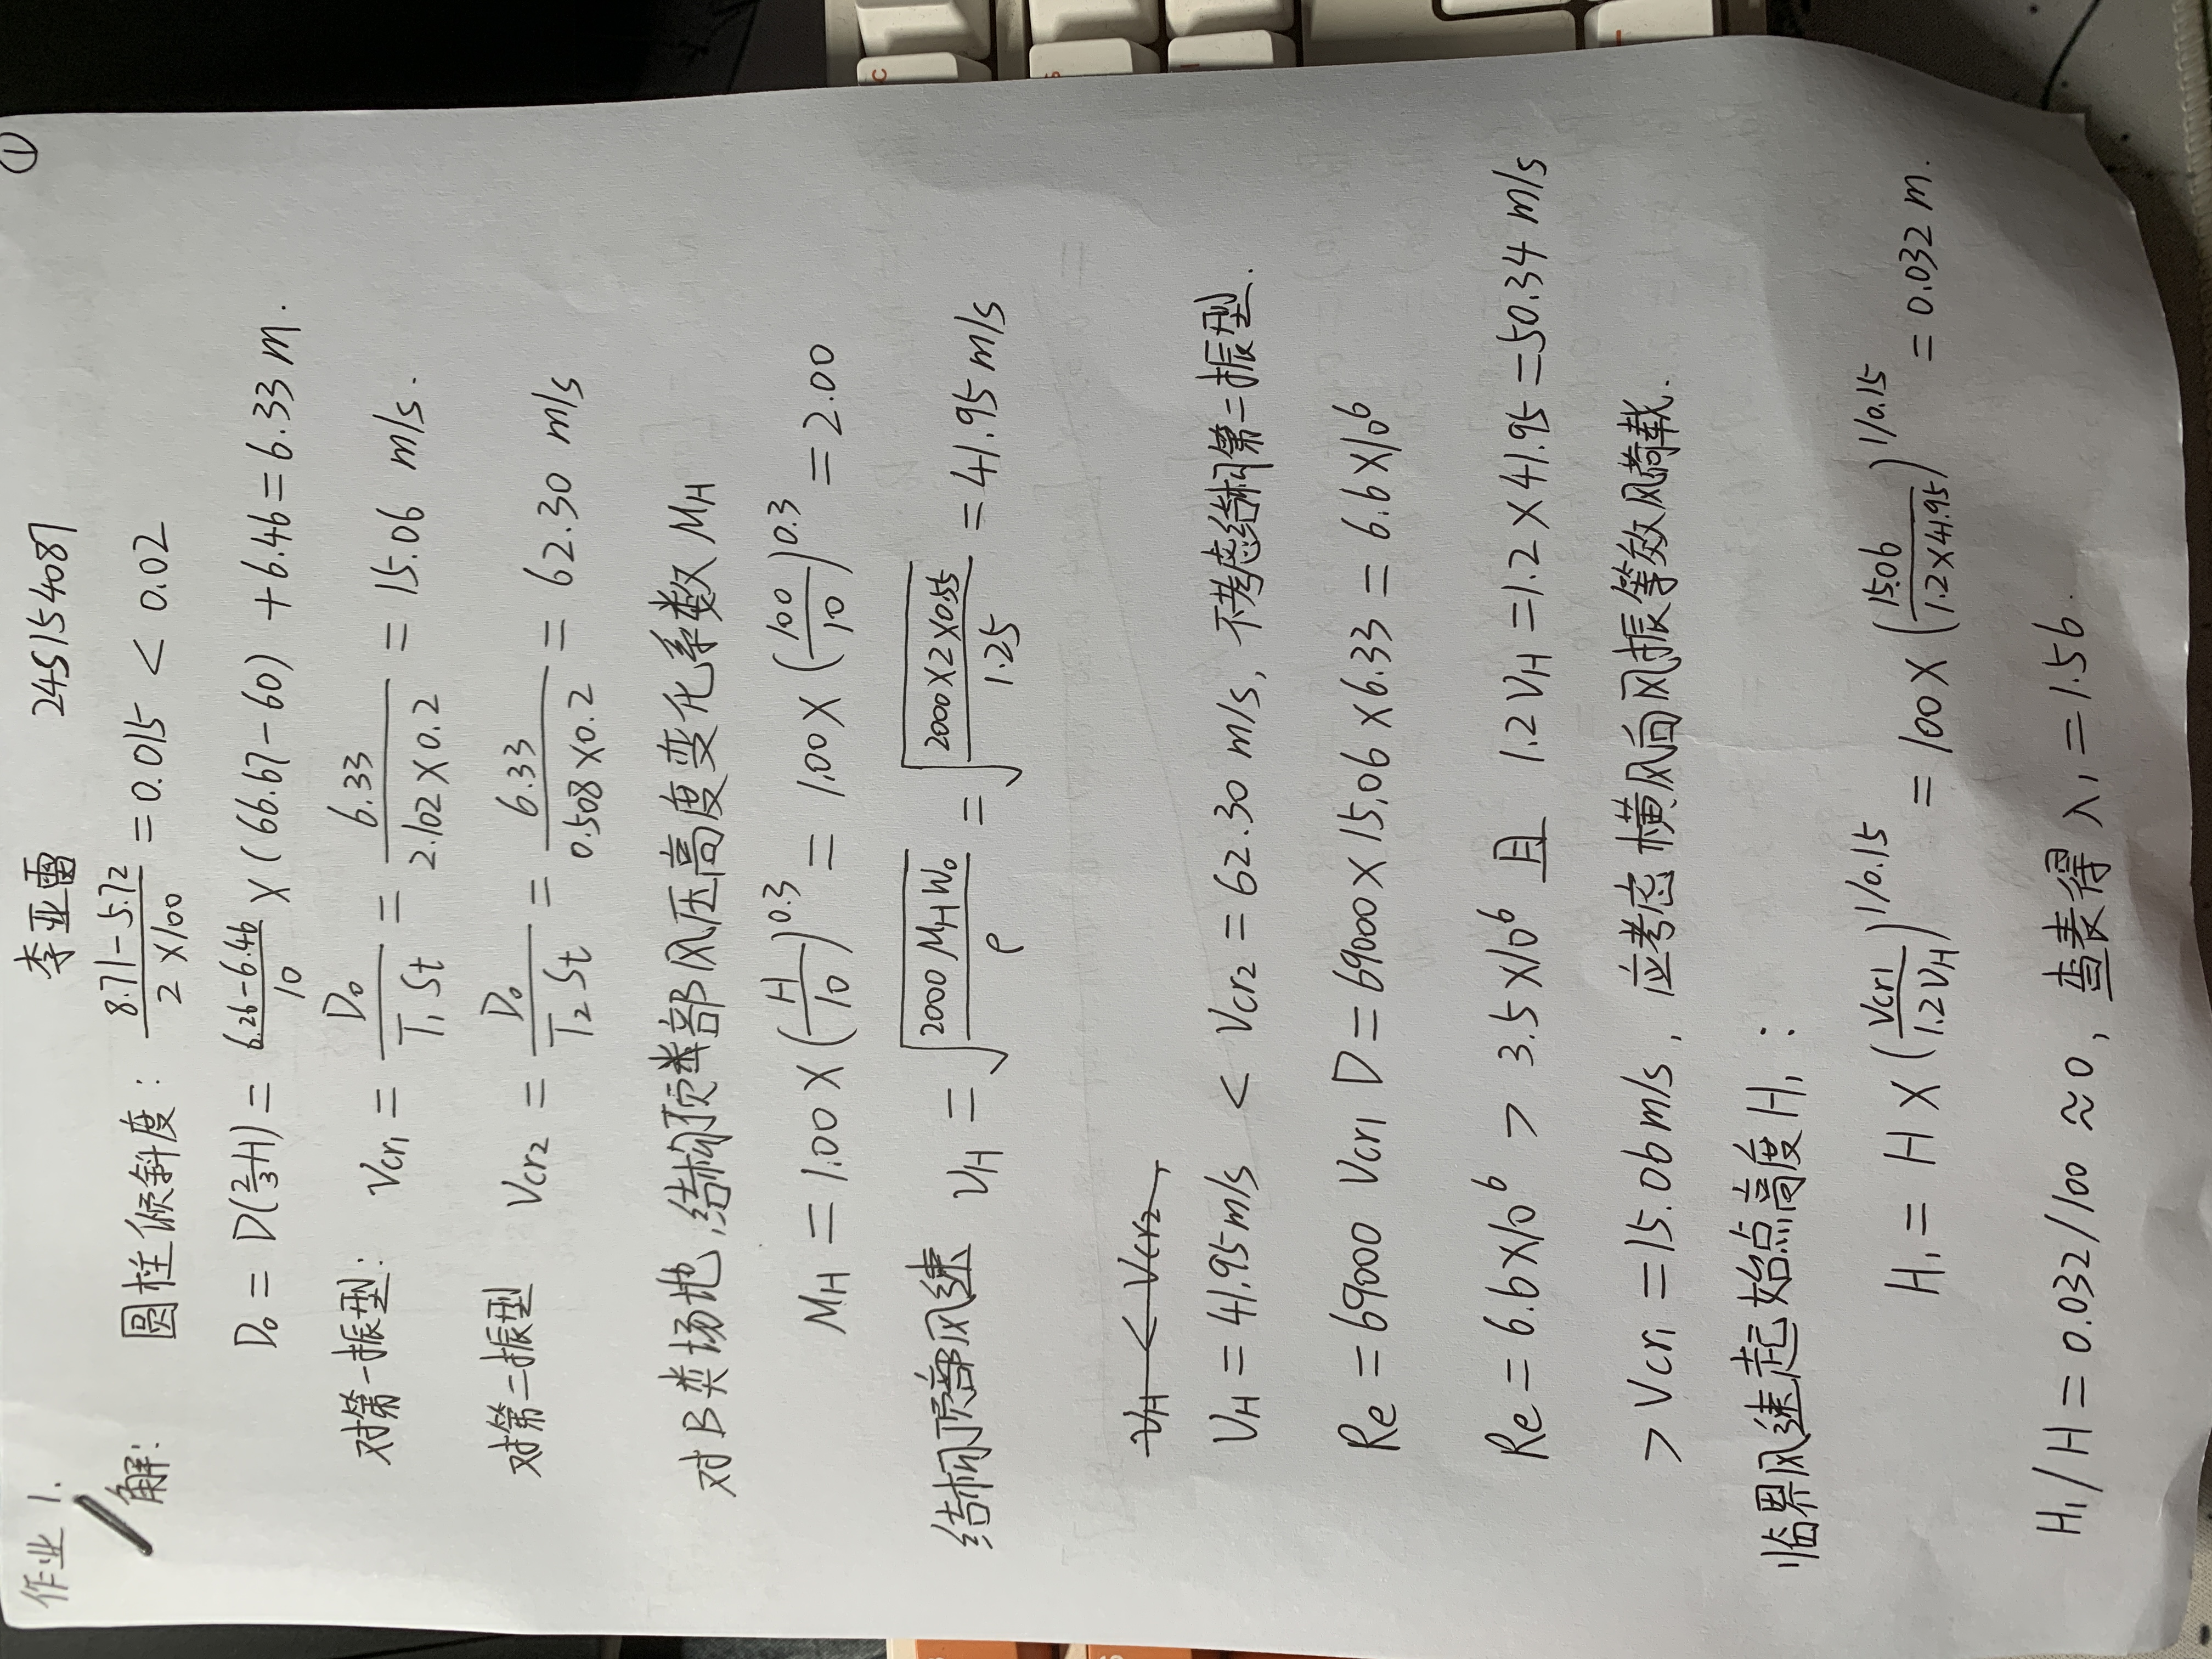 ①
作业 1. 李亚雷 245154087
解: 圆柱倾斜度: (8.71-5.72)/(2×100) = 0.015 < 0.02
D₀ = D(⅔H) = (6.26-6.46)/10 × (66.67-60) + 6.46 = 6.33 m.
对第一振型: Vcr₁ = D₀/(T₁ St) = 6.33/(2.102×0.2) = 15.06 m/s.
对第二振型 Vcr₂ = D₀/(T₂ St) = 6.33/(0.508×0.2) = 62.30 m/s
对B类场地,结构顶部风压高度变化系数 μH
μH = 1.00 × (H/10)^0.3 = 1.00 × (100/10)^0.3 = 2.00
结构顶部风速 νH = √(2000 μH W₀/ρ) = √(2000×2×0.55/1.25) = 41.95 m/s
νH < Vcr₂,
νH = 41.95 m/s < Vcr₂ = 62.30 m/s, 不考虑结构第二振型.
Re = 69000 Vcr₁ D = 69000×15.06×6.33 = 6.6×10⁶
Re = 6.6×10⁶ > 3.5×10⁶ 且 1.2νH = 1.2×41.95 = 50.34 m/s
> Vcr₁ = 15.06 m/s, 应考虑横风向风振等效风荷载.
临界风速起始点高度H₁:
H₁ = H × (Vcr₁/1.2νH)^1/0.15 = 100 × (15.06/1.2×41.95)^1/0.15 = 0.032 m.
H₁/H = 0.032/100 ≈ 0, 查表得 λ₁ = 1.56.